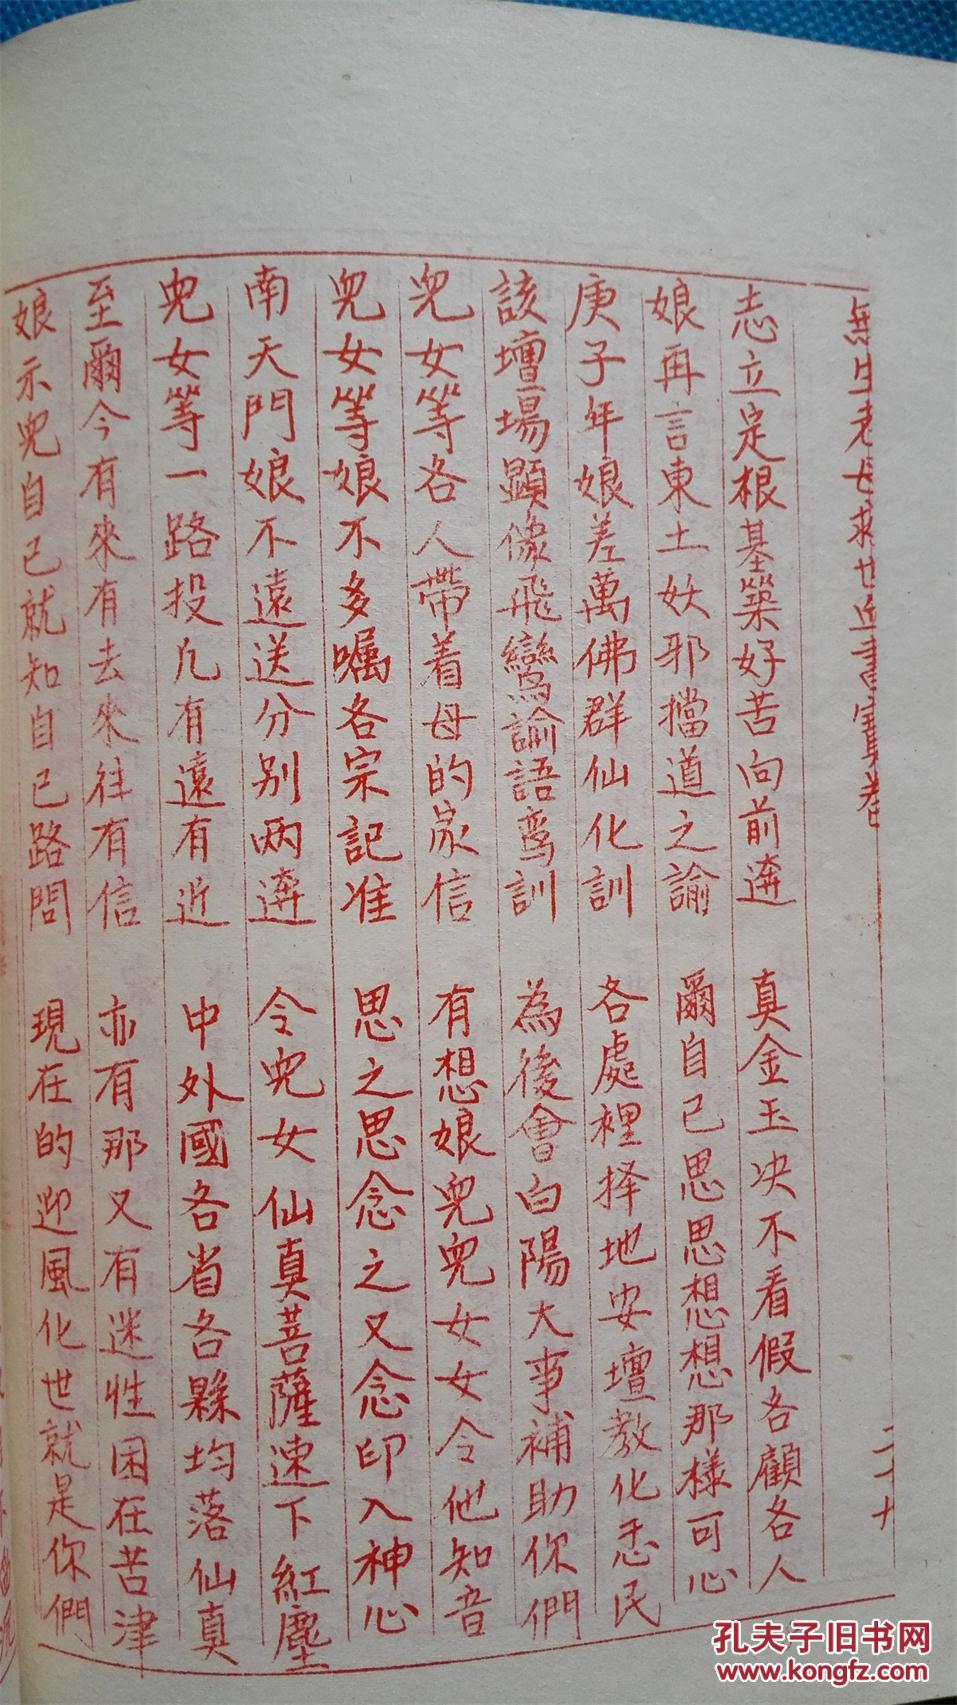 無生老母救世血書寳卷
二十
志立定根基築好苦向前遊 真金玉决不看假各顧各人
娘再言東土妖邪擋道之諭 爾自己思思想想那樣可心
庚子年娘差萬佛群仙化訓 各處裡择地安壇教化丕民
該壇場顯像飛鸞諭語鸾訓 為後會白陽大事補助你們
兒女等各人帶着母的家信 有想娘兒兒女女令他知音
兒女等娘不多嘱各宗記准 思之思念之又念印入神心
南天門娘不遠送分别两遊 令兒女仙真菩薩速下紅塵
兒女等一路投凡有遠有近 中外國各省各縣均落仙真
至爾今有來有去來往有信 亦有那又有迷性困在苦津
娘示兒自己就知自己路問 現在的迎風化世就是你們
孔夫子旧书网
www.kongfz.com